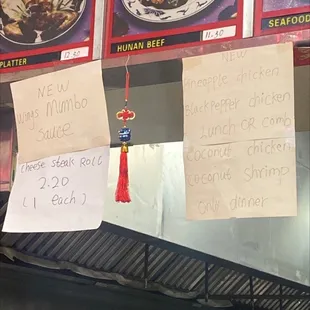 PLATTER
12.50
HUNAN BEEF
11.50
SEAFOOD
NEW
Wings Mumbo
Sauce
Cheese steak ROLL
2.20
(1 each)
NEW
Pineapple chicken
Blackpepper chicken
Lunch OR Comb
Coconut chicken
Coconut Shrimp
Only dinner